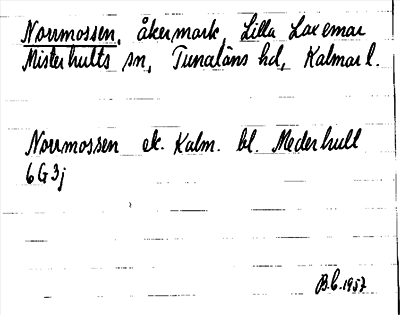 Norrmossen, åkermark, Lilla Laxemar
Misterhults sn, Tunaläns hd, Kalmar l.
Norrmossen ek. Kalm. bl. Mederhult
6G3j
B.C. 1957